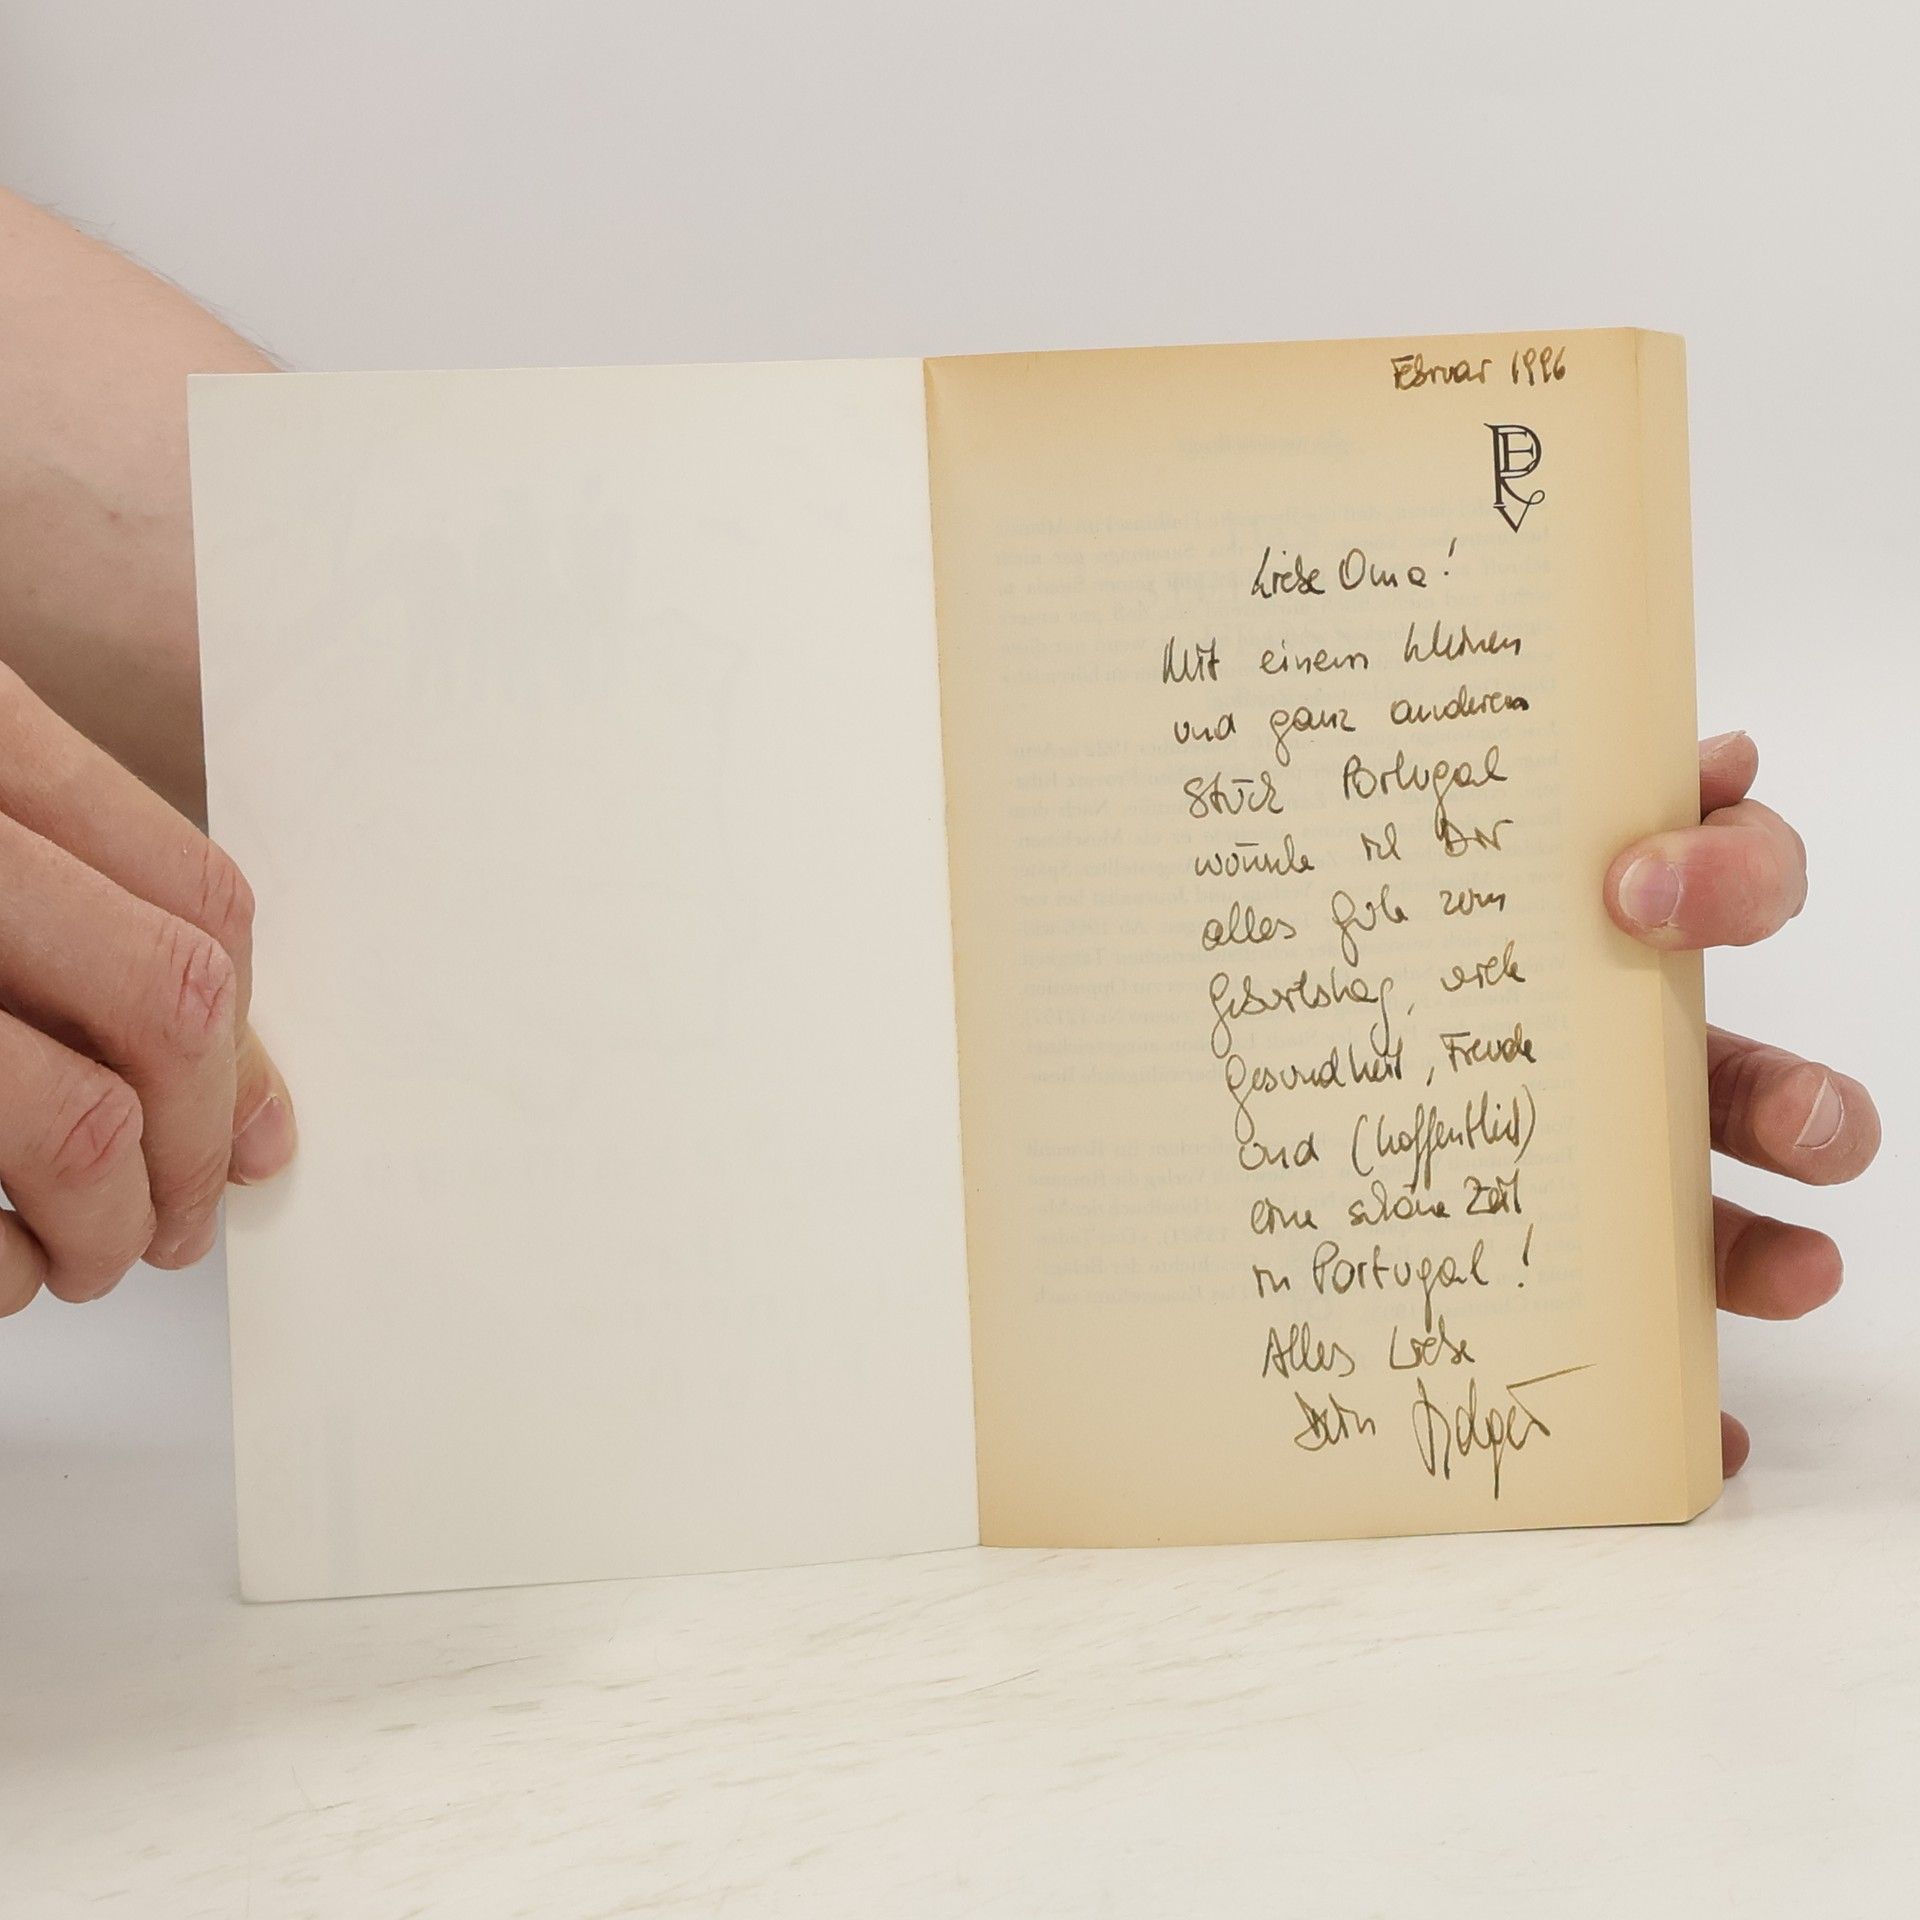 Februar 1996
Liebe Oma!
Mit einem kleinen
und ganz anderem
Stück Portugal
wünsche ich Dir
alles Gute zum
Geburtstag, viele
Gesundheit, Freude
und (hoffentlich)
eine schöne Zeit
in Portugal!
Alles Liebe
Dein